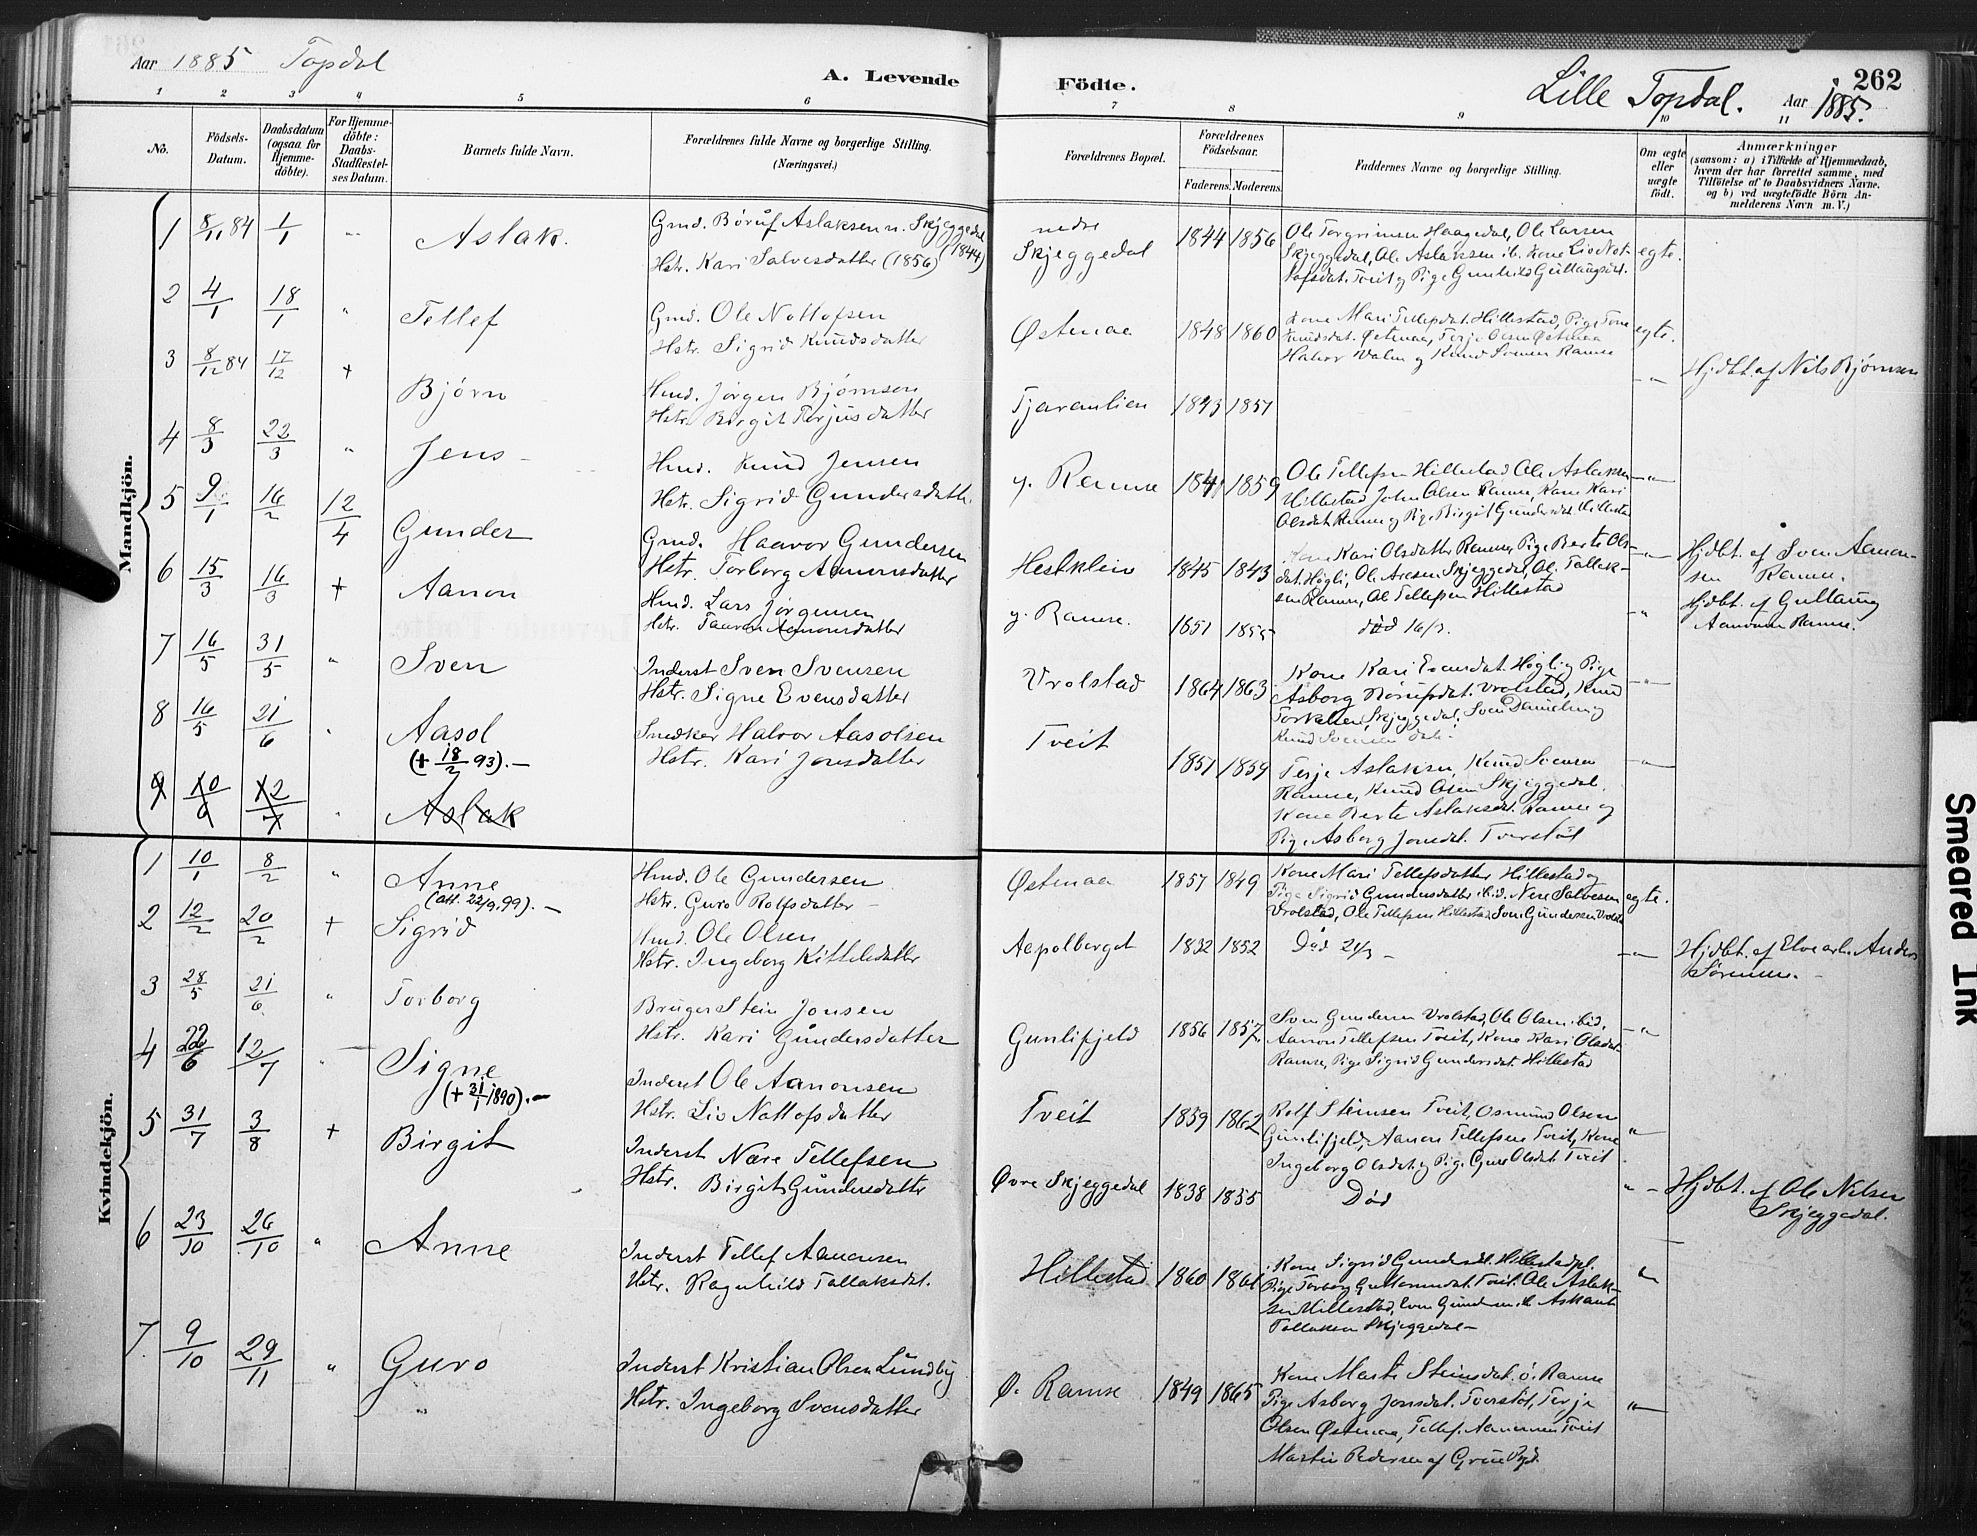 Aar 1885 Topdal
A. Levende
Födte.
Lille Topdal. Aar 1885.
262
1 2 3 4 5 6 7 8 9 10 11
No.
Födsels-Datum.
Daabsdatum (ogsaa for Hjemme-döbte).
For Hjemme-döbte: Daabs-Stadfæstel-ses Datum.
Barnets fulde Navn.
Forældrenes fulde Navne og borgerlige Stilling.
(Næringsvei.)
Forældrenes Bopæl.
Forældrenes Födselsaar.
Faderens. Moderens.
Faddernes Navne og borgerlige Stilling.
Om ægte eller uægte födt.
Anmærkninger
(saasom: a) i Tilfælde af Hjemmedaab,
hvem der har forrettet samme, med
Tilföielse af to Daabsvidners Navne.
og b) ved uægtefödte Börn An-
melderens Navn m. V.)
Mandkjön.
1 8/11 84 1/1 " Aslak.
Gmd. Börùf Aslaksen n. Skjeggedal (1844)
Hstr. Kari Salvesdatter (1856)
nedre Skjeggedal 1844 1856
Ole Torgrimsen Haagedal, Ole Larsen
Skjeggedal, Ole Aslaksen ib. Kone Liv Not-
tofsdat. Tveit og Pige Gunhild
egte.
2 4/1 18/1 " Tellef
Gmd. Ole Nottofsen
Hstr. Sigrid Knudsdatter
Østenaa 1848 1860
Kone Mari Tellefsdat. Hillestad, Pige Tone
Knudsdat. Østenaa, Terje Olsen Østenaa
Halvor og Knud Svensen Ramse
egte.
3 8/12 84 17/12 + Björn
Hmd. Jörgen Bjömsen
Hstr. Birgit Terjusdatter
1843 1851
- " -
Hjdbt. af Nils Bjørnsen
4 8/3 22/3 " Jens
Hmd. Knud Jensen
Hstr. Sigrid Gundersdatter
y. Ramse 1841 1859
Ole Tellefsen Hillestad, Ole Aslaksen
Hillestad, John Olsen Ramse, Kone Kari
Olsdat. Ramse og Pige Birgit Gundersdat. Hillestad
- " -
5 9/1 16/2 12/4 Gunder
Gmd. Haavor Gundersen
Hstr. Torborg Aanonsdatter
Hestklein 1845 1843
Kone Kari Olsdatter Ramse, Pige Berte Ols-
dat. Högli, Ole Aresen Skjeggedal, Ol. Tallak-
sen Ramse, Ol. Tellefsen Hillestad
- " -
Hjdbt. af Sven Aanon-
sen Ramse.
6 15/3 16/3 + Aanon
Hmd. Lars Jörgensen
Hstr. Taaran Aanonsdatter
y. Ramse. 1851 1855
död 16/3.
"
Hjdbt. af Guttorm
Aanonsen Ramse.
7 16/5 31/5 " Sven
Inderst Sven Svensen
Hstr. Signe Evensdatter
Vrolstad 1864 1863
Kone Kari Evensdat. Högli, Pige
Asborg Vrolstad, Knud
Torkelsen Skjeggedal, Sven Danielsen og
Knud Svensen
- " -
8 16/5 21/6 " Aasol
(+ 18/2 93).-
Snedker Halvor Aasolsen
Hstr. Kari Jonsdatter
Tveit 1851 1859
Terje Aslaksen, Knud Svensen
Ramse, Knud Olsen Skjeggedal.
Kone Berte Aslaksdat. Ramse og
Pige Asborg Jonsdat. Tverstöl
- " -
9 10/6 12/7 " Aslak
Kvindekjön.
1 10/1 8/2 " Anne
(att. 22/9.99).-
Hmd. Ole Gundersen
Hstr. Guro Rolfsdatter
Østenaa 1857 1849
Kone Mari Tellefsdatter Hillestad og
Pige Sigrid Gundersdatter ibid. Nere Salvesen
Vrolstad, Ole Tellefsen Hillestad, Sven Gundersen Vrolstad
egte.
2 12/2 20/2 + Sigrid
Hmd. Ole Olsen
Hstr. Ingeborg Kittelsdatter
Aspolberget 1832 1852
Död 21/3 -
- " -
Hjdbt. af Elvearb. Anders
Sörensen. -
3 28/5 21/6 " Torborg
Bruger Stein Jonsen
Hstr. Kari Gùndersdatter
Gunlifjeld 1856 1857
Sven Gundersen Vrolstad, Ole Olsen ibid.
Aanon Tellefsen Tveit, Kone Kari Olsdat.
Ramse, Pige Sigrid Gundersdat. Hillestad
- " -
4 22/6 12/7 " Signe
(+ 31/1 1890).-
Inderst Ole Aanonsen
Hstr. Liv Nottofsdatter
Tveit 1859 1862
Rolf Steinsen Tveit, Osmund Olsen
Gunlifjeld, Aanon Tellefsen Tveit, Kone
Ingeborg Olsdat. og Pige Guro Olsdat. Tveit
"
5 31/7 3/8 + Birgit
Inderst Nære Tellefsen
Hstr. Birgit Gùndersdatter
Øvre Skjeggedal 1838 1855
Död
" -
Hjdbt. af Ole Nilsen
Skjeggedal.
6 23/10 26/10 " Anne
Inderst Tellef Aanonsen
Hstr. Ragnhild Tallaksdat.
Hillestad 1860 1861
Kone Sigrid Gundersdt. Hillestad,
Pige Torborg Guttormsdat. Tveit. Ole Aslak-
sen Hillestad, Even Gundersen
Tallaksen Skjeggedal-
"
7. 9/10 29/11 " Guro
Inderst Kristian Olsen Lùndby
Hstr. Ingeborg Svensdatter
Ø. Ramse 1849 1865
Kone Marte Steinsdat. ö. Ramse
Pige Asborg Jonsdat. Tverstöl, Terje
Olsen Østenaa, Tellef Aanonsen Tveit
Martin Pedersen af
"
Smeared Ink